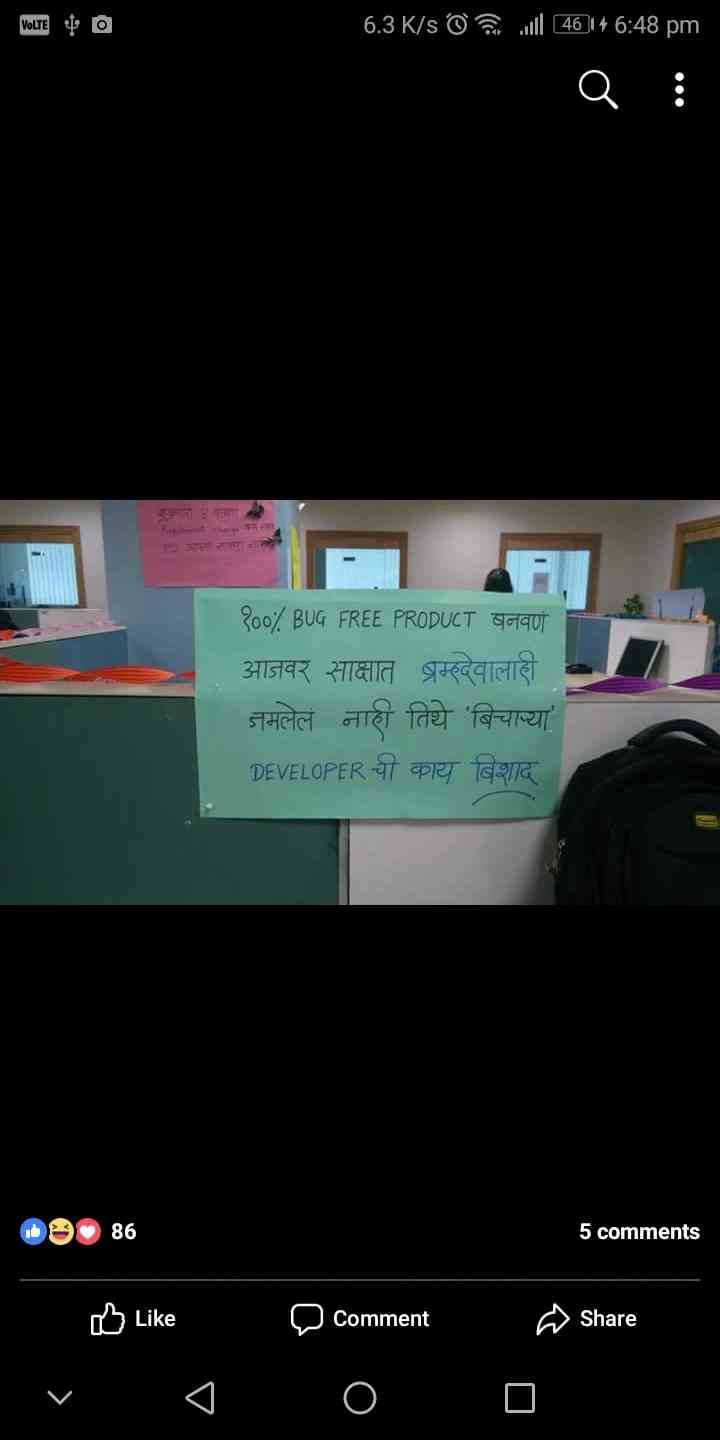 VoLTE 6.3 K/s 46 6:48 pm
१००% BUG FREE PRODUCT बनवणं
आजवर साक्षात ब्रम्हदेवालाही
जमलेलं नाही तिथे 'बिचाऱ्या'
DEVELOPER ची काय बिशाद
86 5 comments
Like Comment Share